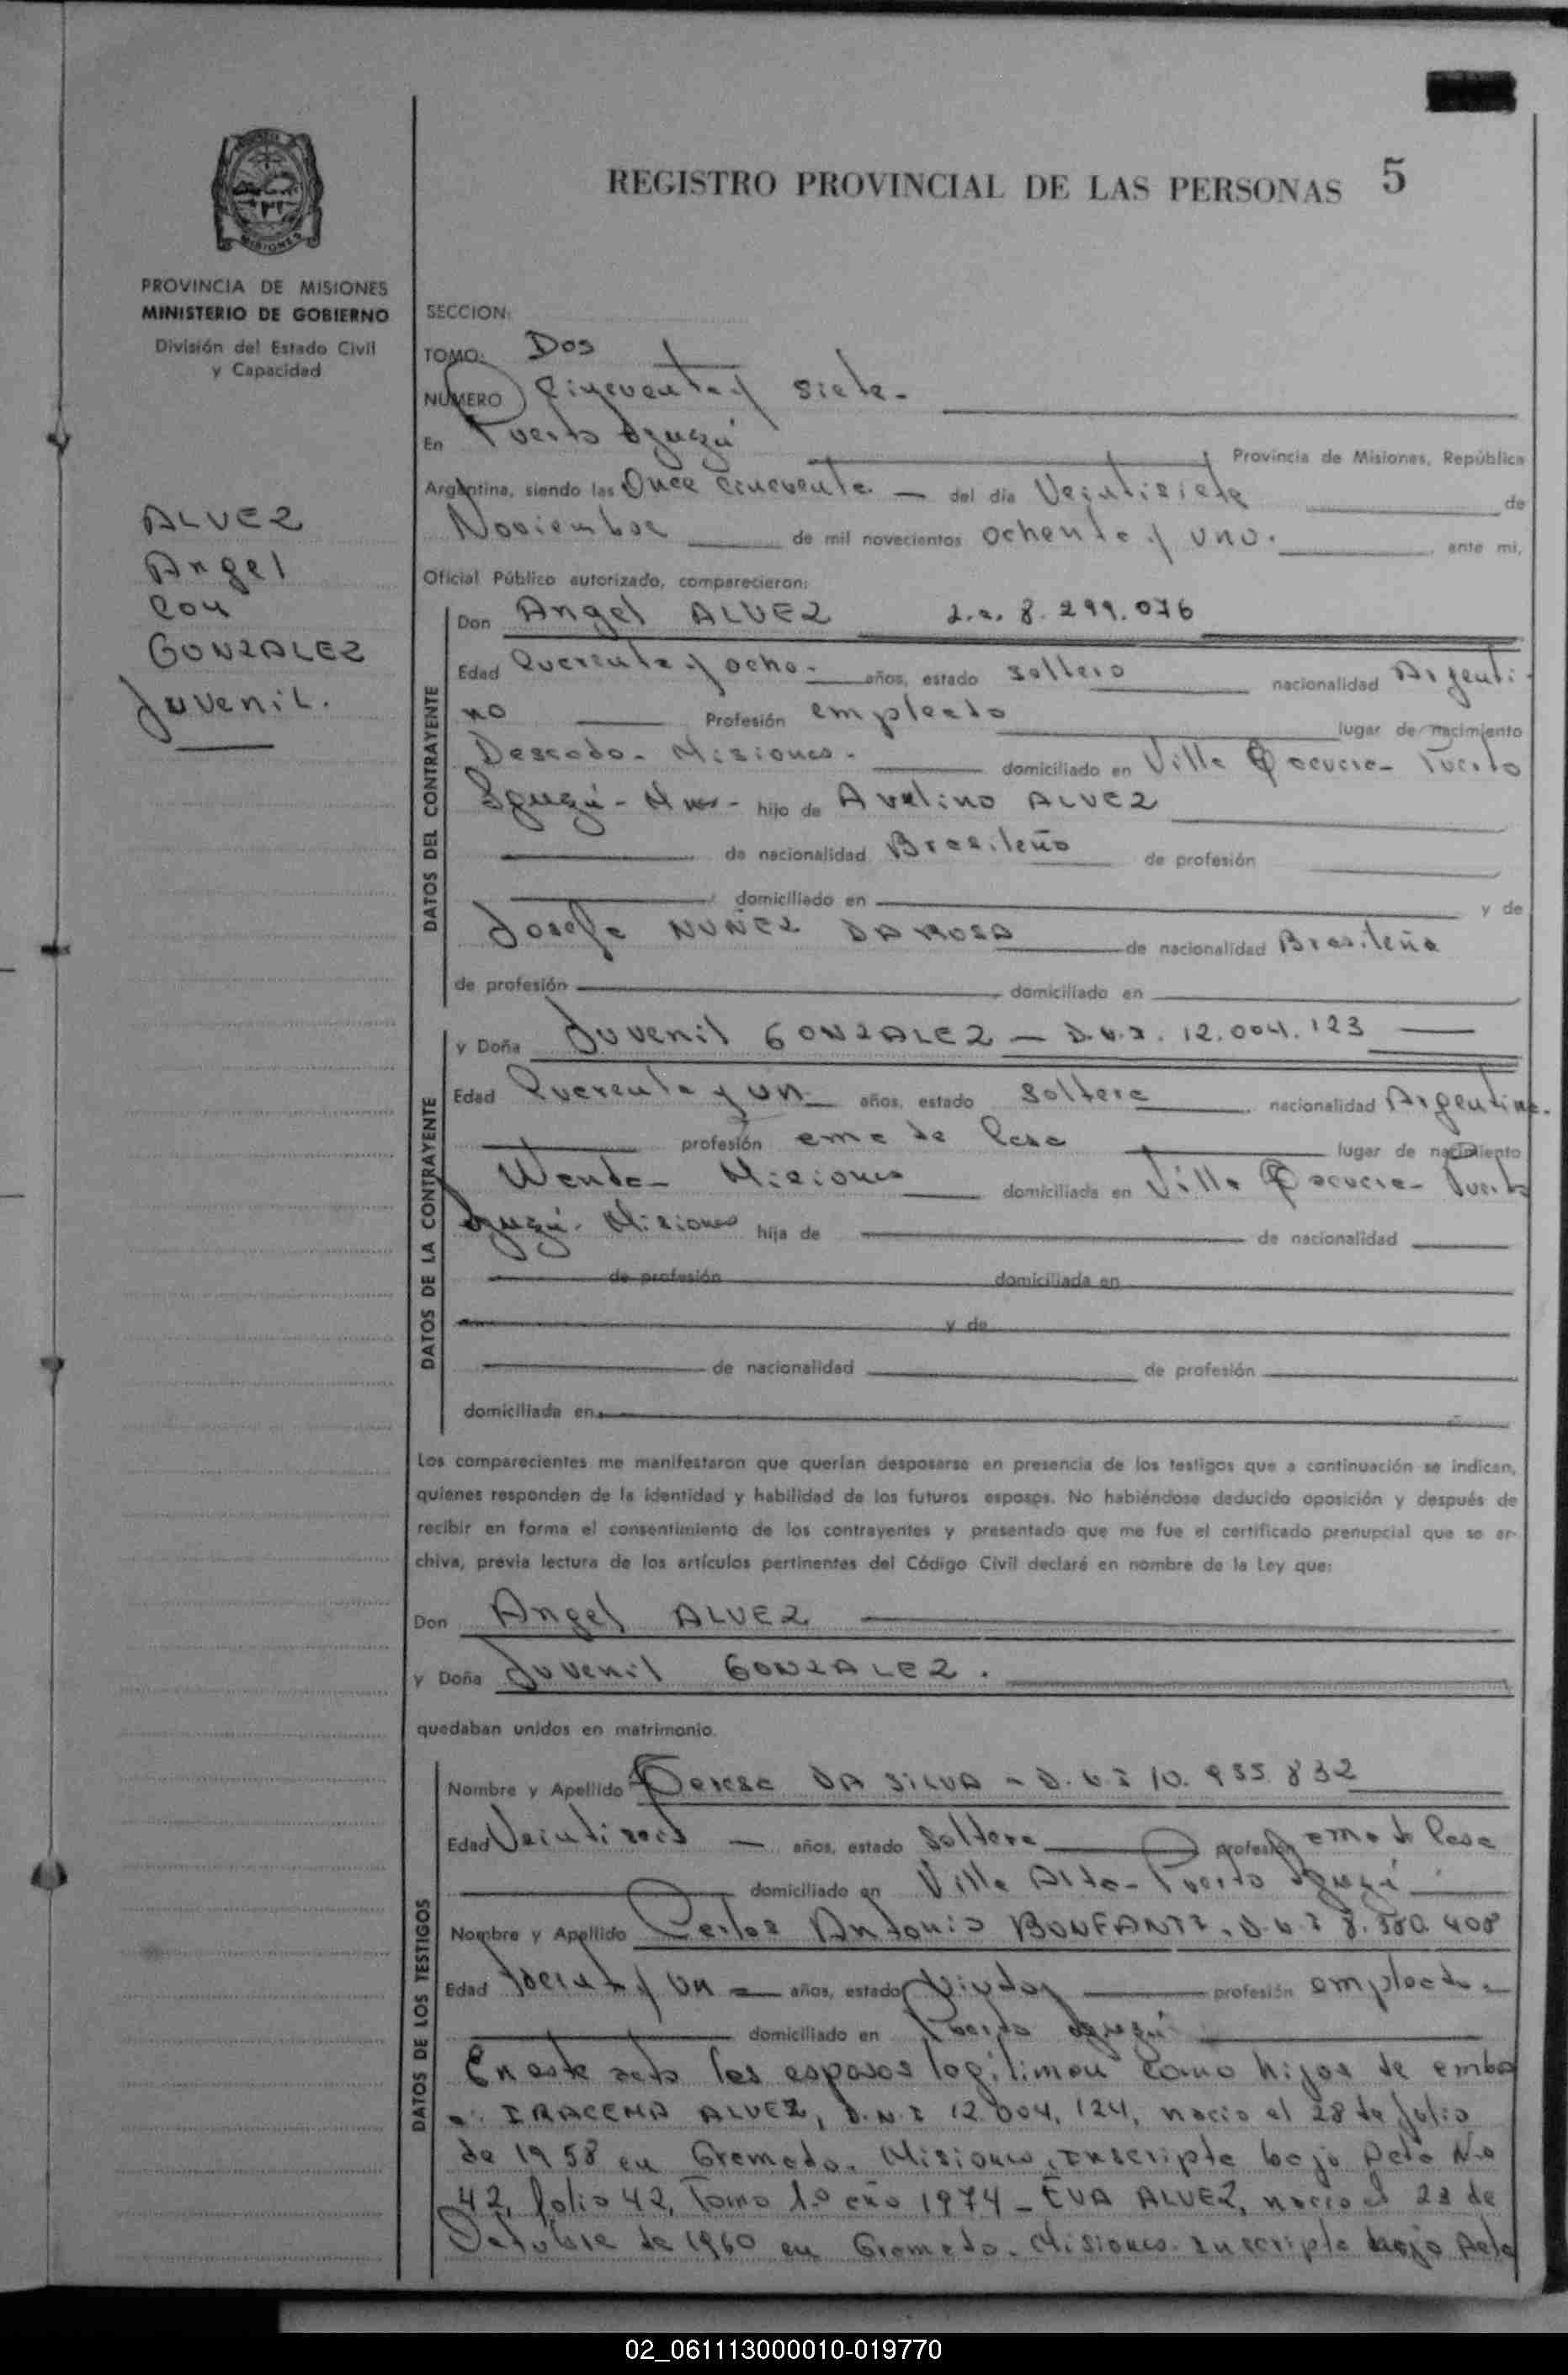 REGISTRO PROVINCIAL DE LAS PERSONAS 5
MISIONES
PROVINCIA DE MISIONES
MINISTERIO DE GOBIERNO
División del Estado Civil
y Capacidad
ALVEZ
Angel
con
GONZALEZ
Juvenil.
SECCION:
TOMO: Dos
NUMERO Cincuenta y siete.
En Puerto Iguazú Provincia de Misiones, República
Argentina, siendo las Once cincuenta del día Veintisiete de
Noviembre de mil novecientos ochenta y uno. ante mi,
Oficial Público autorizado, comparecieron:
DATOS DEL CONTRAYENTE
Don Angel ALVEZ L.e. 8.299.076
Edad Cuarenta y ocho años, estado soltero nacionalidad Argenti-
no Profesión empleado lugar de nacimiento
Misiones. domiciliado en Villa Puerto
Iguazú - Mnes - hijo de Avelino ALVEZ
de nacionalidad Brasileño de profesión
domiciliado en y de
Josefa NUÑEZ DA ROSA de nacionalidad Brasileña
de profesión domiciliado en
DATOS DE LA CONTRAYENTE
y Doña Juvenil GONZALEZ - D.N.I. 12.004.123
Edad Cuarenta y un años, estado soltera nacionalidad Argentina.
profesión ama de casa lugar de nacimiento
Wanda - Misiones domiciliada en Villa Puerto
Iguazú - Misiones hija de de nacionalidad
de profesión domiciliada en
y de
de nacionalidad de profesión
domiciliada en
Los comparecientes me manifestaron que querían desposarse en presencia de los testigos que a continuación se indican,
quienes responden de la identidad y habilidad de los futuros esposos. No habiéndose deducido oposición y después de
recibir en forma el consentimiento de los contrayentes y presentado que me fue el certificado prenupcial que se ar-
chiva, previa lectura de los artículos pertinentes del Código Civil declaré en nombre de la Ley que:
Don Angel ALVEZ
y Doña Juvenil GONZALEZ.
quedaban unidos en matrimonio.
DATOS DE LOS TESTIGOS
Nombre y Apellido Teresa DA SILVA - D.N.I 10.935.832
Edad años, estado soltera profesión ama de casa
domiciliado en Villa Alta - Puerto Iguazú
Nombre y Apellido Carlos Antonio BONFANTI, D.N.I 8.380.408
Edad Treinta y un años, estado viudo profesión empleado
domiciliado en Puerto Iguazú
En este acto los esposos legitiman como hijos de ambo
a: IRACEMA ALVEZ, D.N.I 12.004.124, nacio el 28 de Julio
de 1958 en Gramado. Misiones, inscripta bajo Acta No
42, folio 42, Tomo 1º año 1974 - EVA ALVEZ, nacio el 23 de
Octubre de 1960 en Gramado. Misiones. inscripta bajo Acta
02_061113000010-019770